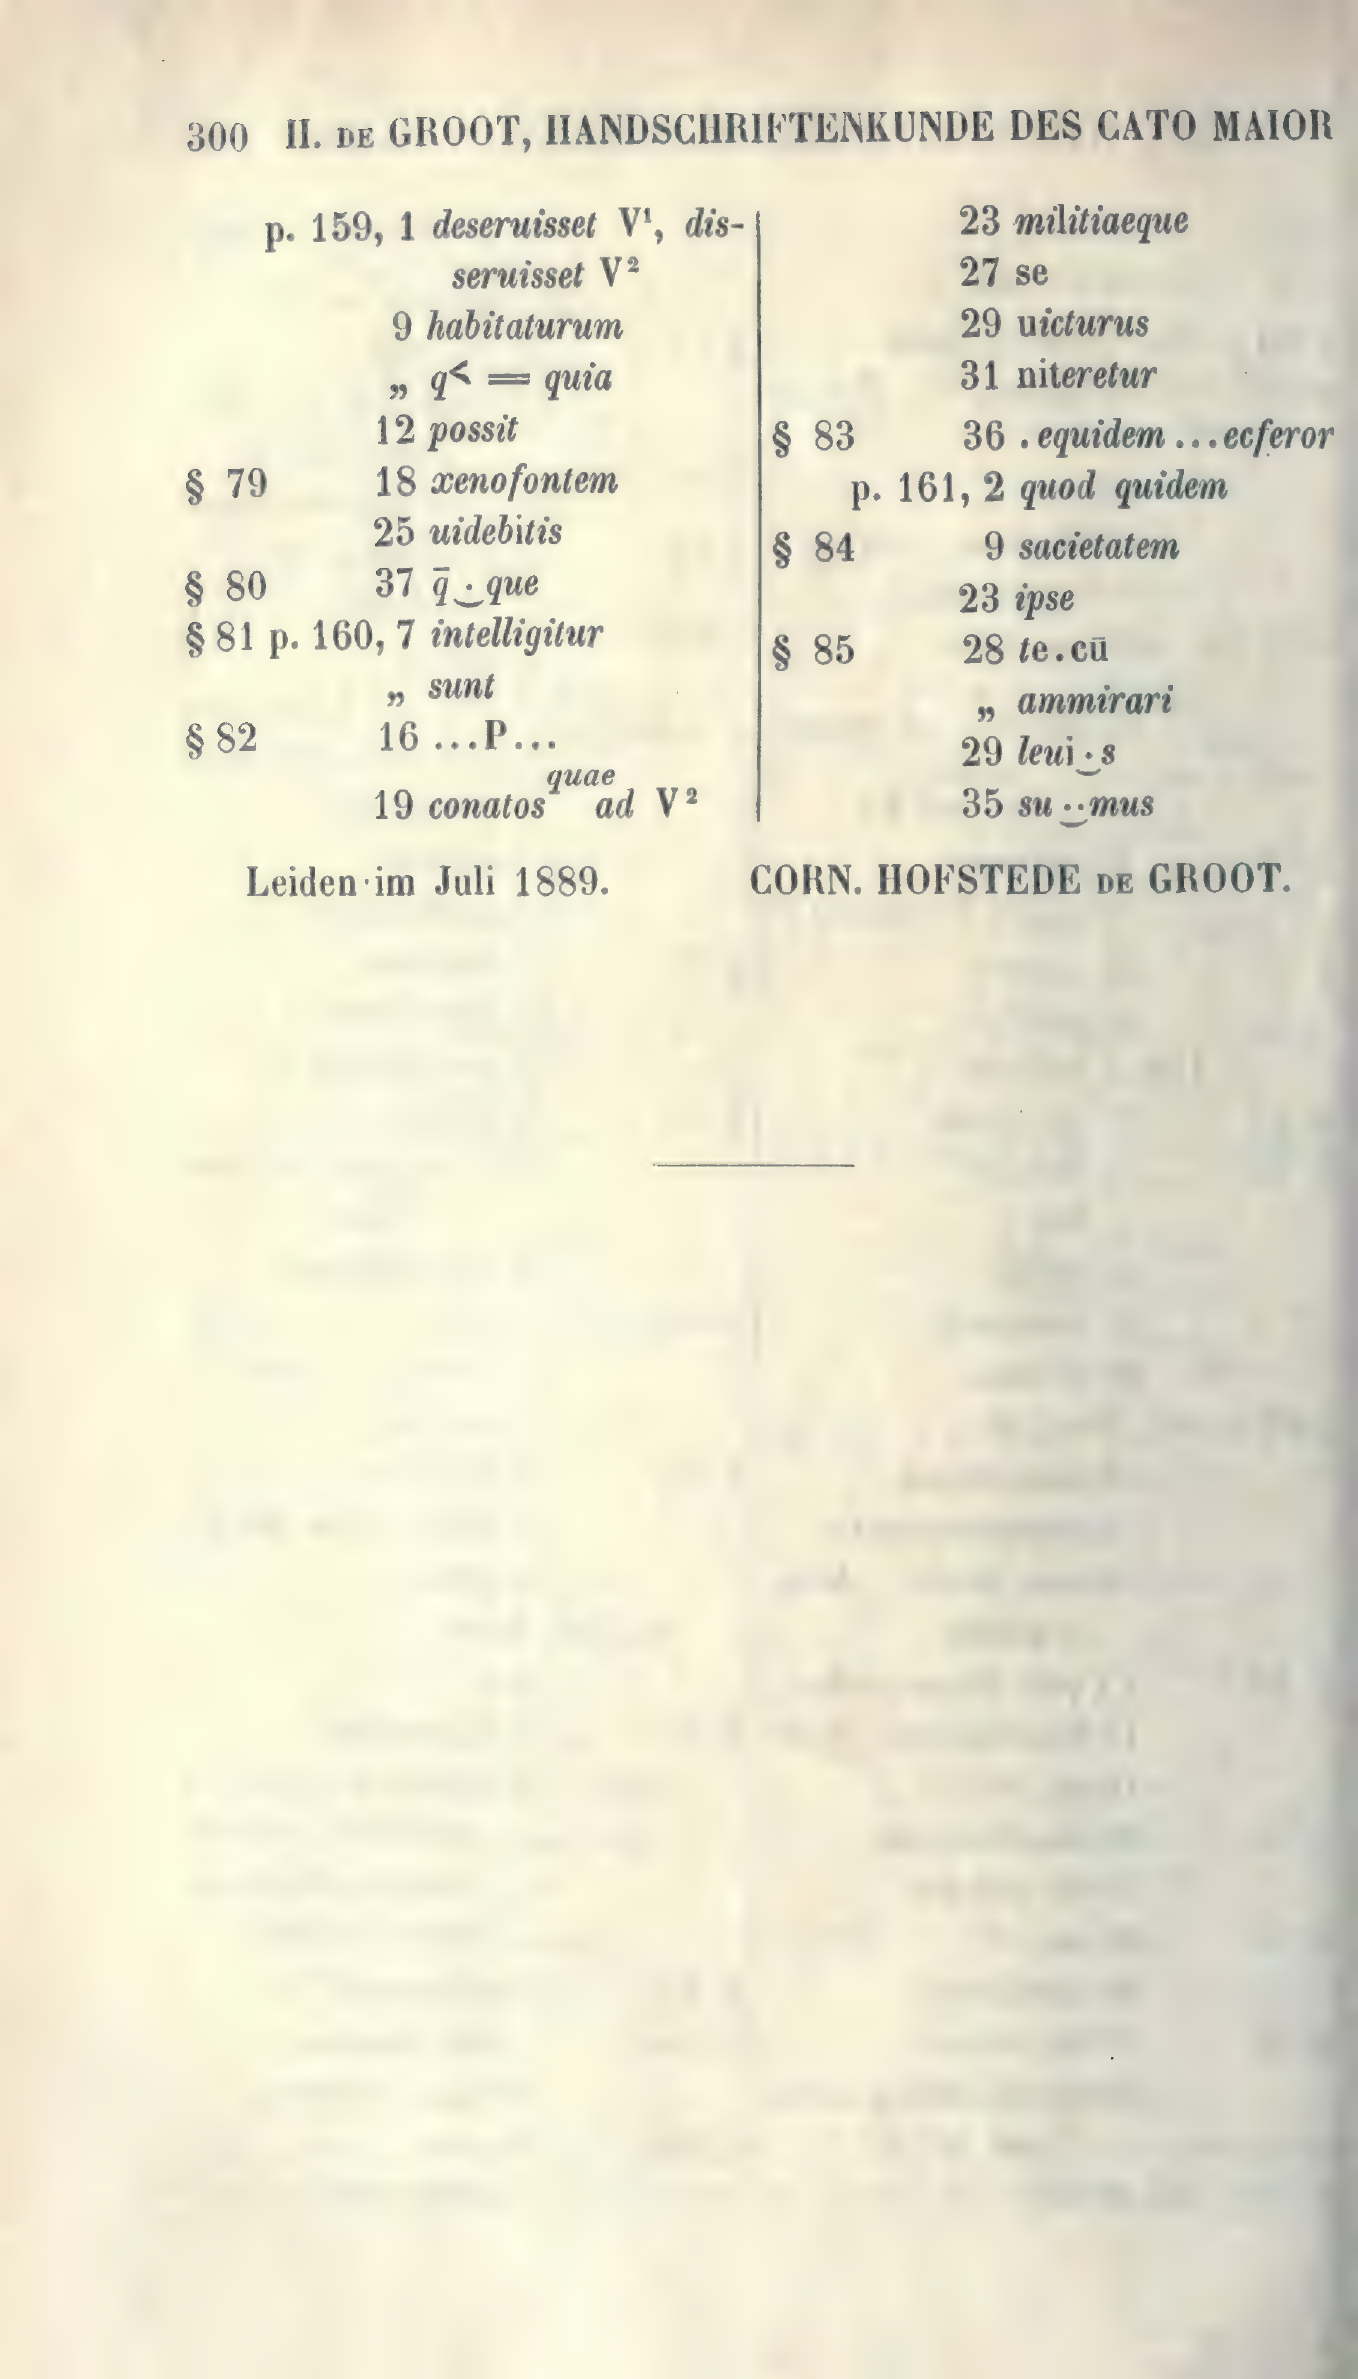 300 H. DE GROOT, HANDSCHRIFTENKUNDE DES CATO MAIOR
p. 159, 1 deseruisset V¹, dis-
seruisset V²
9 habitaturum
„ q< = quia
12 possit
§ 79 18 xenofontem
25 uidebitis
§ 80 37 q̄‿·que
§ 81 p. 160, 7 intelligitur
„ sunt
§ 82 16 ...P...
quae
19 conatos ad V²
23 militiaeque
27 se
29 uicturus
31 niteretur
§ 83 36 . equidem ... ecferor
p. 161, 2 quod quidem
§ 84 9 sacietatem
23 ipse
§ 85 28 te.cū
„ ammirari
29 leui‿·s
35 su‿··mus
Leiden im Juli 1889. CORN. HOFSTEDE DE GROOT.